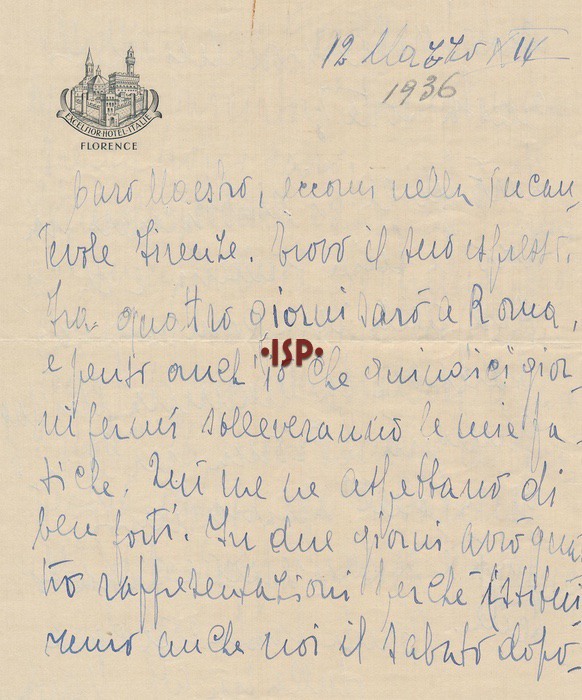 12 Marzo XIV
1936
EXCELSIOR·HOTEL·ITALIE
FLORENCE
Caro Maestro, eccomi nella incan-
tevole Firenze. Trovo il suo espresso.
Fra quattro giorni sarò a Roma,
e penso anch'io che quindici gior-
·ISP·
ni fermi solleveranno le mie fa-
tiche. Qui me ne aspettano di
ben forti. In due giorni avrò quat
tro rappresentazioni perché istitui
remo anche noi il sabato dopo-